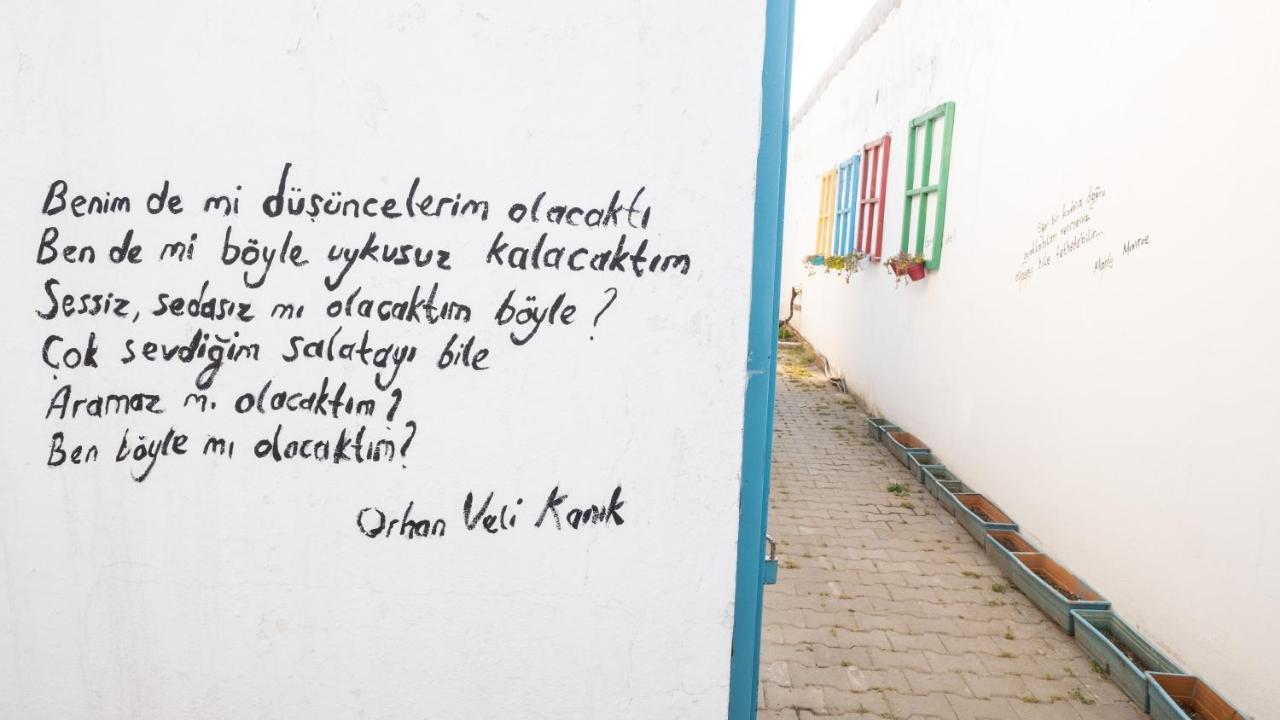 Benim de mi düşüncelerim olacaktı
Ben de mi böyle uykusuz kalacaktım
Sessiz, sedasız mı olacaktım böyle?
Çok sevdiğim salatayı bile
Aramaz mı olacaktım?
Ben böyle mı olacaktım?
Orhan Veli Kanık
Eğer bir kadına doğru